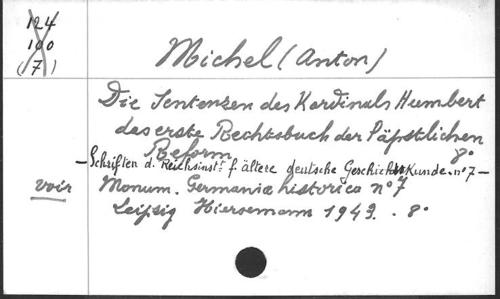 124
100
(7)
Michel (Anton)
Die Sentenzen des Kardinals Humbert
das erste Rechtsbuch der Päpstlichen
Reform 8°
– Schriften d. Reichsinst: f. ältere deutsche Geschichtskunde. n° 7 –
voir Monum. Germaniae historica n° 7
Leipzig Hiersemann 1943. 8°